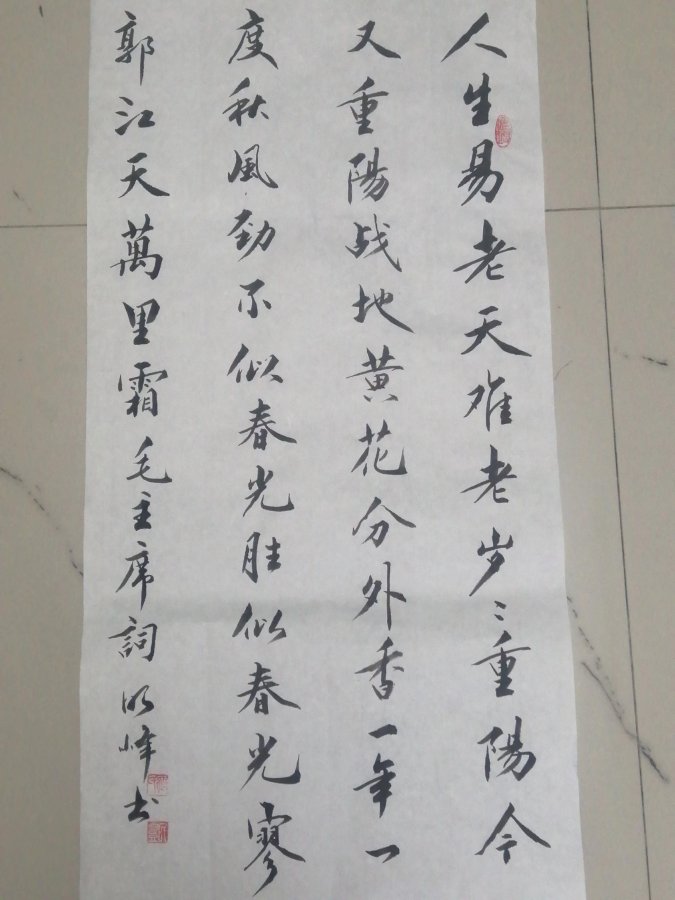 人生易老天难老岁〻重陽今
又重陽战地黄花分外香一年一
度秋風劲不似春光胜似春光寥
郭江天萬里霜毛主席詞明峰书